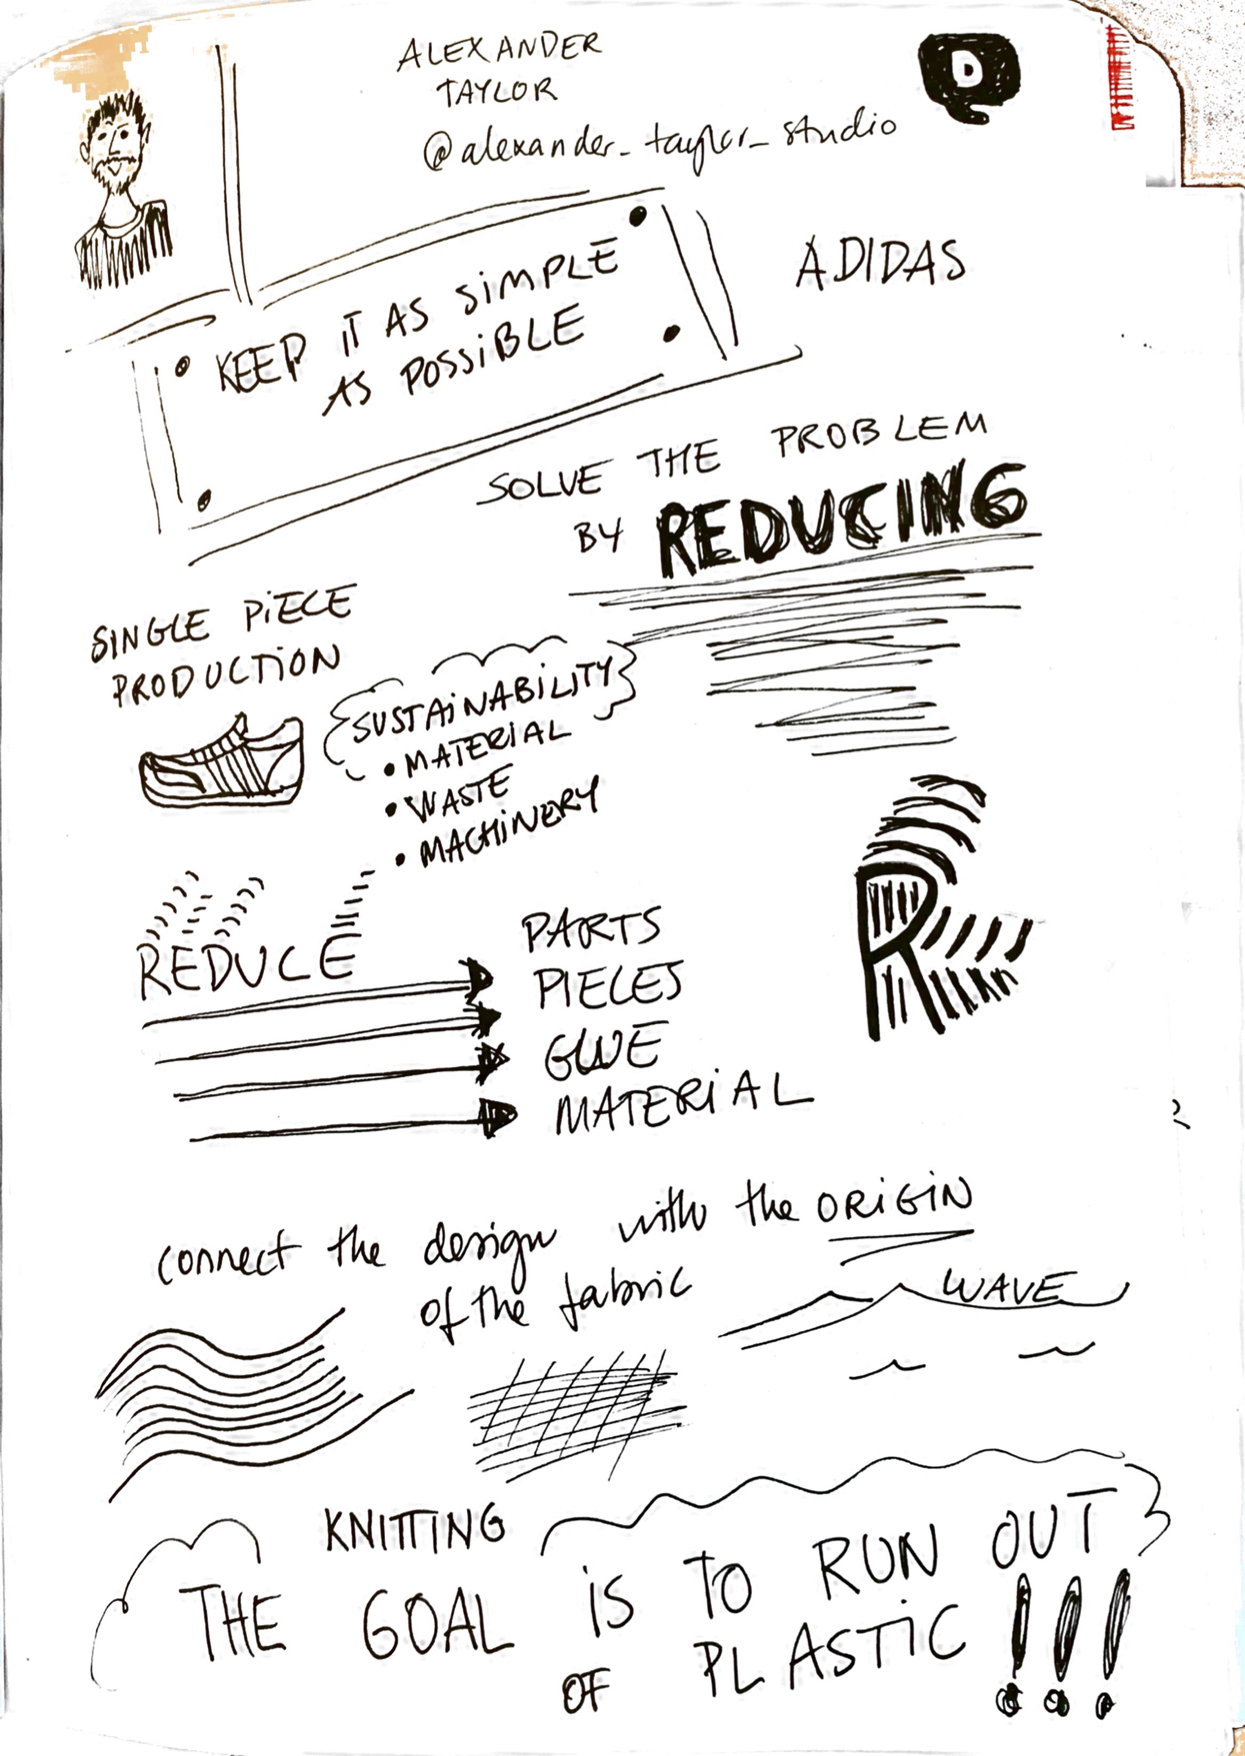 ALEXANDER
TAYLOR
@alexander_taylor_studio
D
KEEP IT AS SIMPLE
AS POSSIBLE
ADIDAS
SOLVE THE PROBLEM
BY REDUCING
SINGLE PIECE
PRODUCTION
SUSTAINABILITY
• MATERIAL
• WASTE
• MACHINERY
REDUCE
PARTS
PIECES
GLUE
MATERIAL
R
connect the design with the ORIGIN
of the fabric
WAVE
KNITTING
THE GOAL IS TO RUN OUT
OF PLASTIC !!!